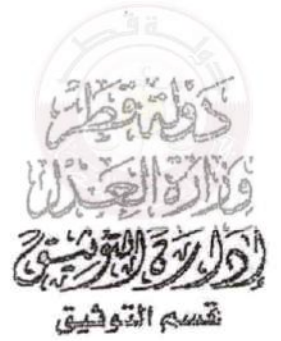 دولة قطر
دولة قطر
وزارة العدل
إدارة التوثيق
قسم التوثيق